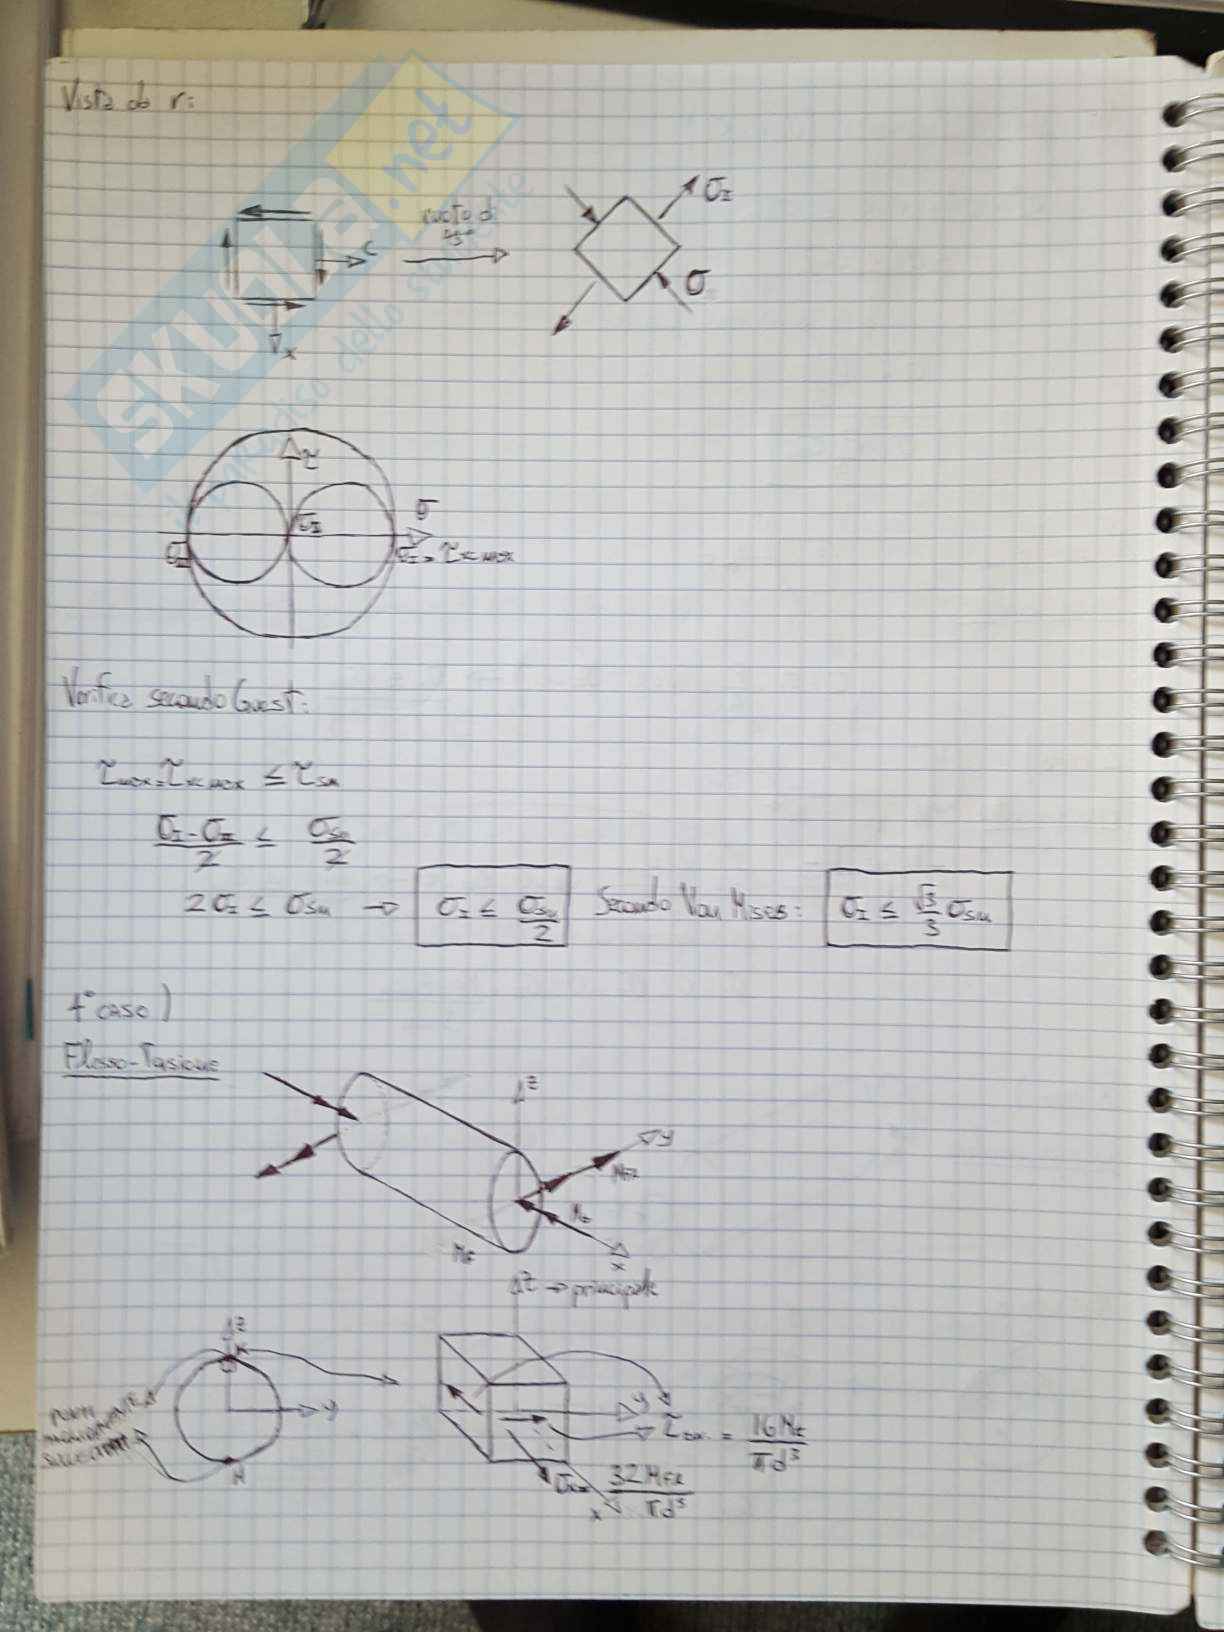 Vista da r:
ruoto di
45°
σI
c
σ
x
SKUOLA.net
τ
σII
σ
σIII
σI = τxc max
Verifica secondo Guest:
τmax = τxc max ≤ τsn
σI - σIII / 2 ≤ σsn / 2
2σI ≤ σsn → σI ≤ σsn / 2 Secondo Von Mises: σI ≤ √3/3 σsn
4° caso)
Flesso-Torsione
z
y
Mfl
Mt
x
Mt
z → principale
z
K
y
PUNTI
SOLLECITATI
H
y
τ = 16Mt / πd³
σxx = 32Mfl / πd³
x